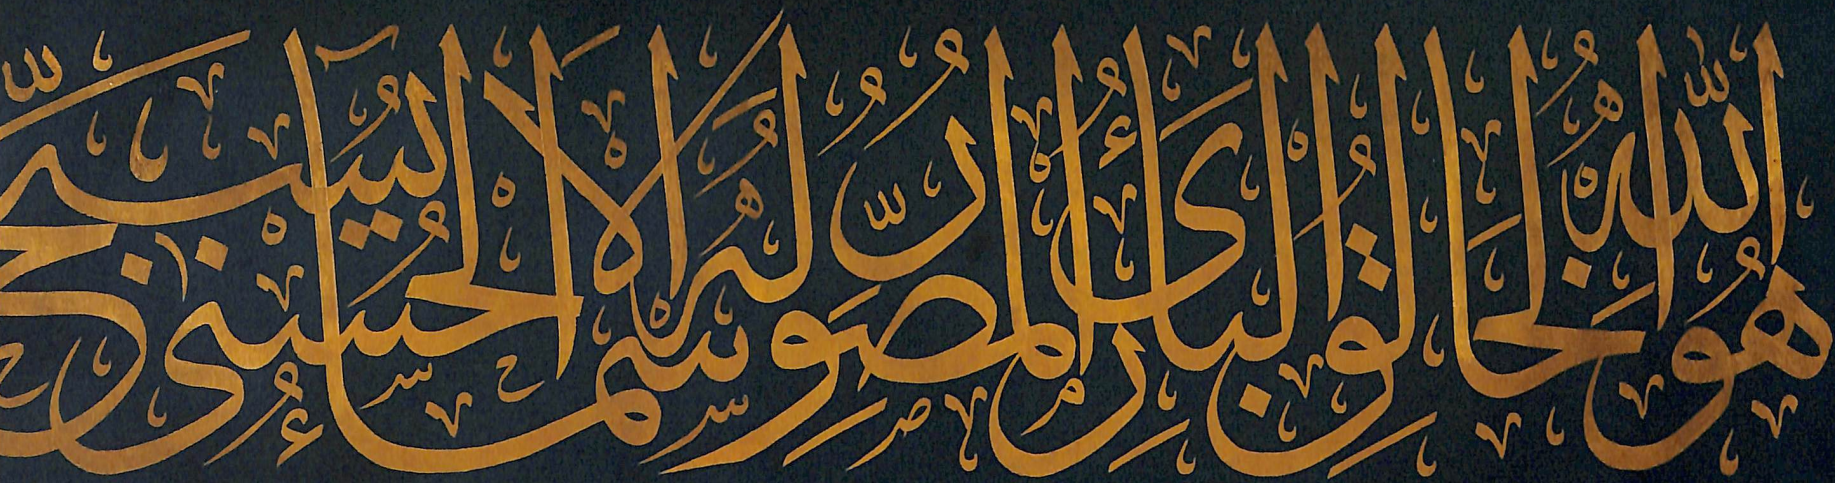 هُوَ اللّٰهُ الْخَالِقُ الْبَارِئُ الْمُصَوِّرُ لَهُ الْاَسْمَاءُ الْحُسْنٰى يُسَبِّحُ